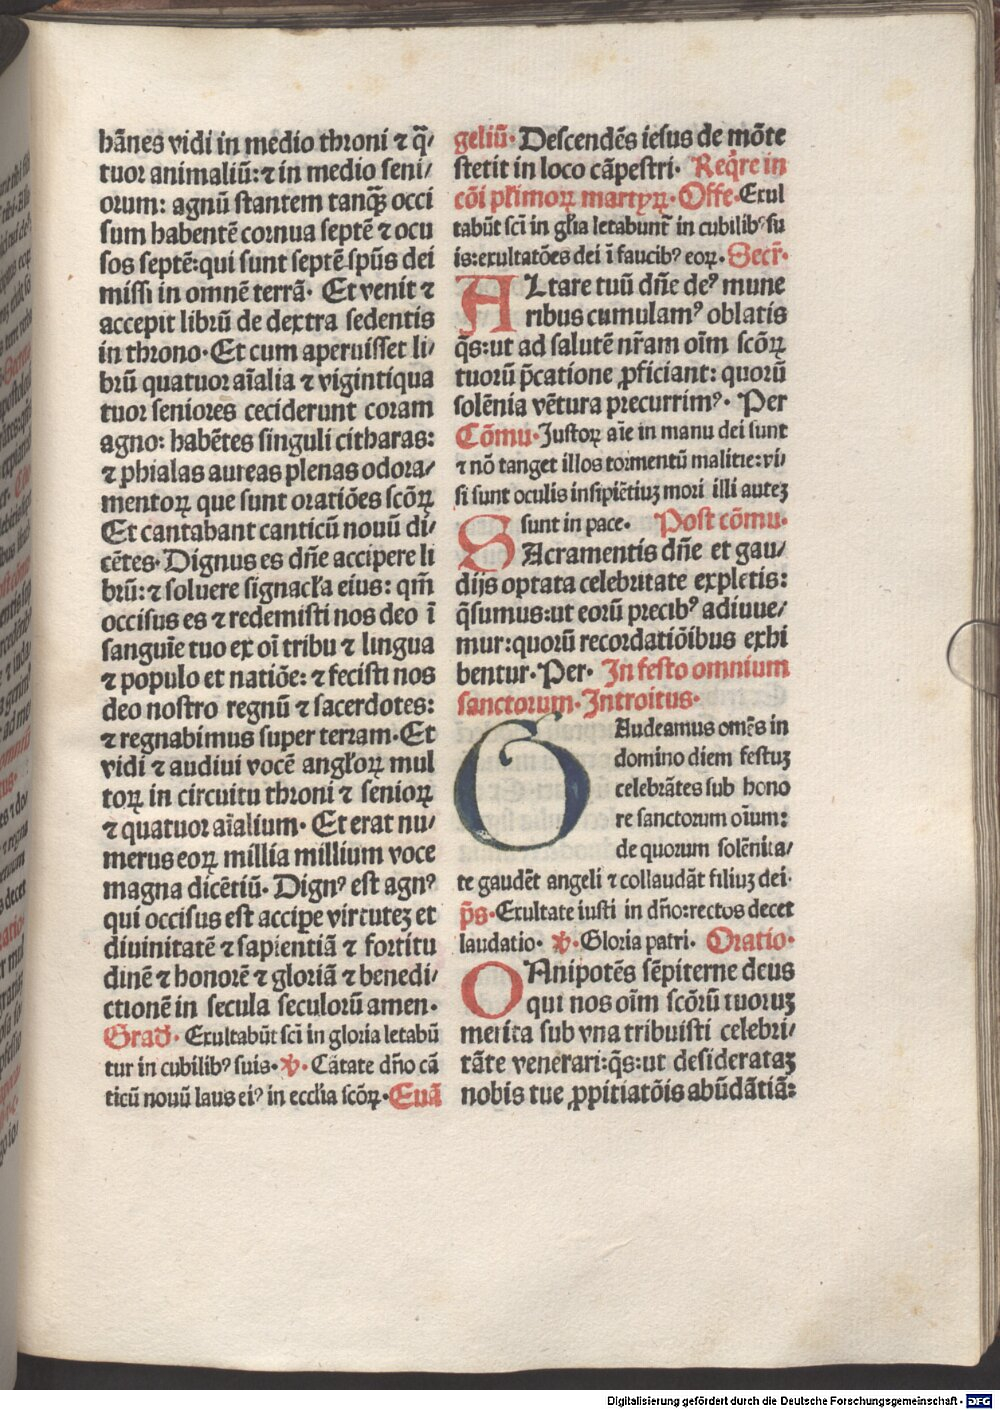 hãnes vidi in medio throni ⁊ q̃/
tuor animaliũ:⁊ in medio seni/
orum: agnũ stantem tanqꝫ occi
sum habentẽ cornua septẽ ⁊ ocu
los septẽ:qui sunt septẽ spũs dei
missi in omnẽ terrã· Et venit ⁊
accepit librũ de dextra sedentis
in throno·Et cum aperuisset li/
brũ quatuor aĩalia ⁊ vigintiqua
tuor seniores ceciderunt coram
agno: habẽtes singuli citharas:
⁊ phialas aureas plenas odora/
mentoꝝ que sunt oratiões scõꝝ
Et cantabant canticũ nouũ di/
cẽtes· Dignus es dñe accipere li
brũ:⁊ soluere signacła eius: qm̃
occisus es ⁊ redemisti nos deo ĩ
sanguĩe tuo ex oĩ tribu ⁊ lingua
⁊ populo et natiõe: ⁊ fecisti nos
deo nostro regnũ ⁊ sacerdotes:
⁊ regnabimus super terram·Et
vidi ⁊ audiui vocẽ angłoꝝ mul
toꝝ in circuitu throni ⁊ senioꝝ
⁊ quatuor aĩalium· Et erat nu/
merus eoꝝ millia millium voce
magna dicẽtiũ· Dignꝰ est agnꝰ
qui occisus est accipe virtuteʒ et
diuinitatẽ ⁊ sapientiã ⁊ fortitu
dinẽ ⁊ honorẽ ⁊ gloriã ⁊ benedi/
ctionẽ in secula seculorũ amen·
Grad̃· Exultabũt sci̇̃ in gloria letabũ
tur in cubilibꝰ suis·℣· Cãtate dño cã
ticũ nouũ laus eiꝰ in eccl̃ia scõꝝ·Euã
geliũ· Descendẽs iesus de mõte
stetit in loco cãpestri· Reqͥre in
cõi płimoꝝ martyꝝ·Offe·Exul
tabũt scĩ in gl̃ia letabunt̃ in cubilibꝰ su
is:exultatões dei ĩ faucibꝰ eoꝝ·Secr̃·
ALtare tuũ dñe deꝰ mune
ribus cumulamꝰ oblatis
q̃s:ut ad salutẽ nr̃am oĩm scõꝝ
tuorũ p̃catione ꝓficiant: quorũ
solẽnia vẽtura precurrimꝰ· Per
Cõmu·Justoꝝ aĩe in manu dei sunt
⁊ nõ tanget illos tormentũ malitie:vi/
si sunt oculis insipiẽtiuʒ mori illi auteʒ
sunt in pace· Post cõmu·
SAcramentis dñe et gau/
dijs optata celebritate expletis:
q̃sumus:ut eorũ precibꝰ adiuue/
mur:quorũ recordatiõibus exhi
bentur·Per· In festo omnium
sanctorum·Introitus·
GAudeamus oms̃ in
domino diem festuʒ
celebrãtes sub hono
re sanctorum oĩum:
de quorum solẽnita/
te gaudẽt angeli ⁊ collaudãt filiuʒ dei·
p̃s·Exultate iusti in dño:rectos decet
laudatio· ℣·Gloria patri. Oratio·
OAnipotẽs sẽpiterne deus
qui nos oĩm scõrũ tuoruʒ
merita sub vna tribuisti celebri/
tãte venerari:q̃s:ut desiderataʒ
nobis tue ꝓpitiatõis abũdãtiã:
Digitalisierung gefördert durch die Deutsche Forschungsgemeinschaft - DFG